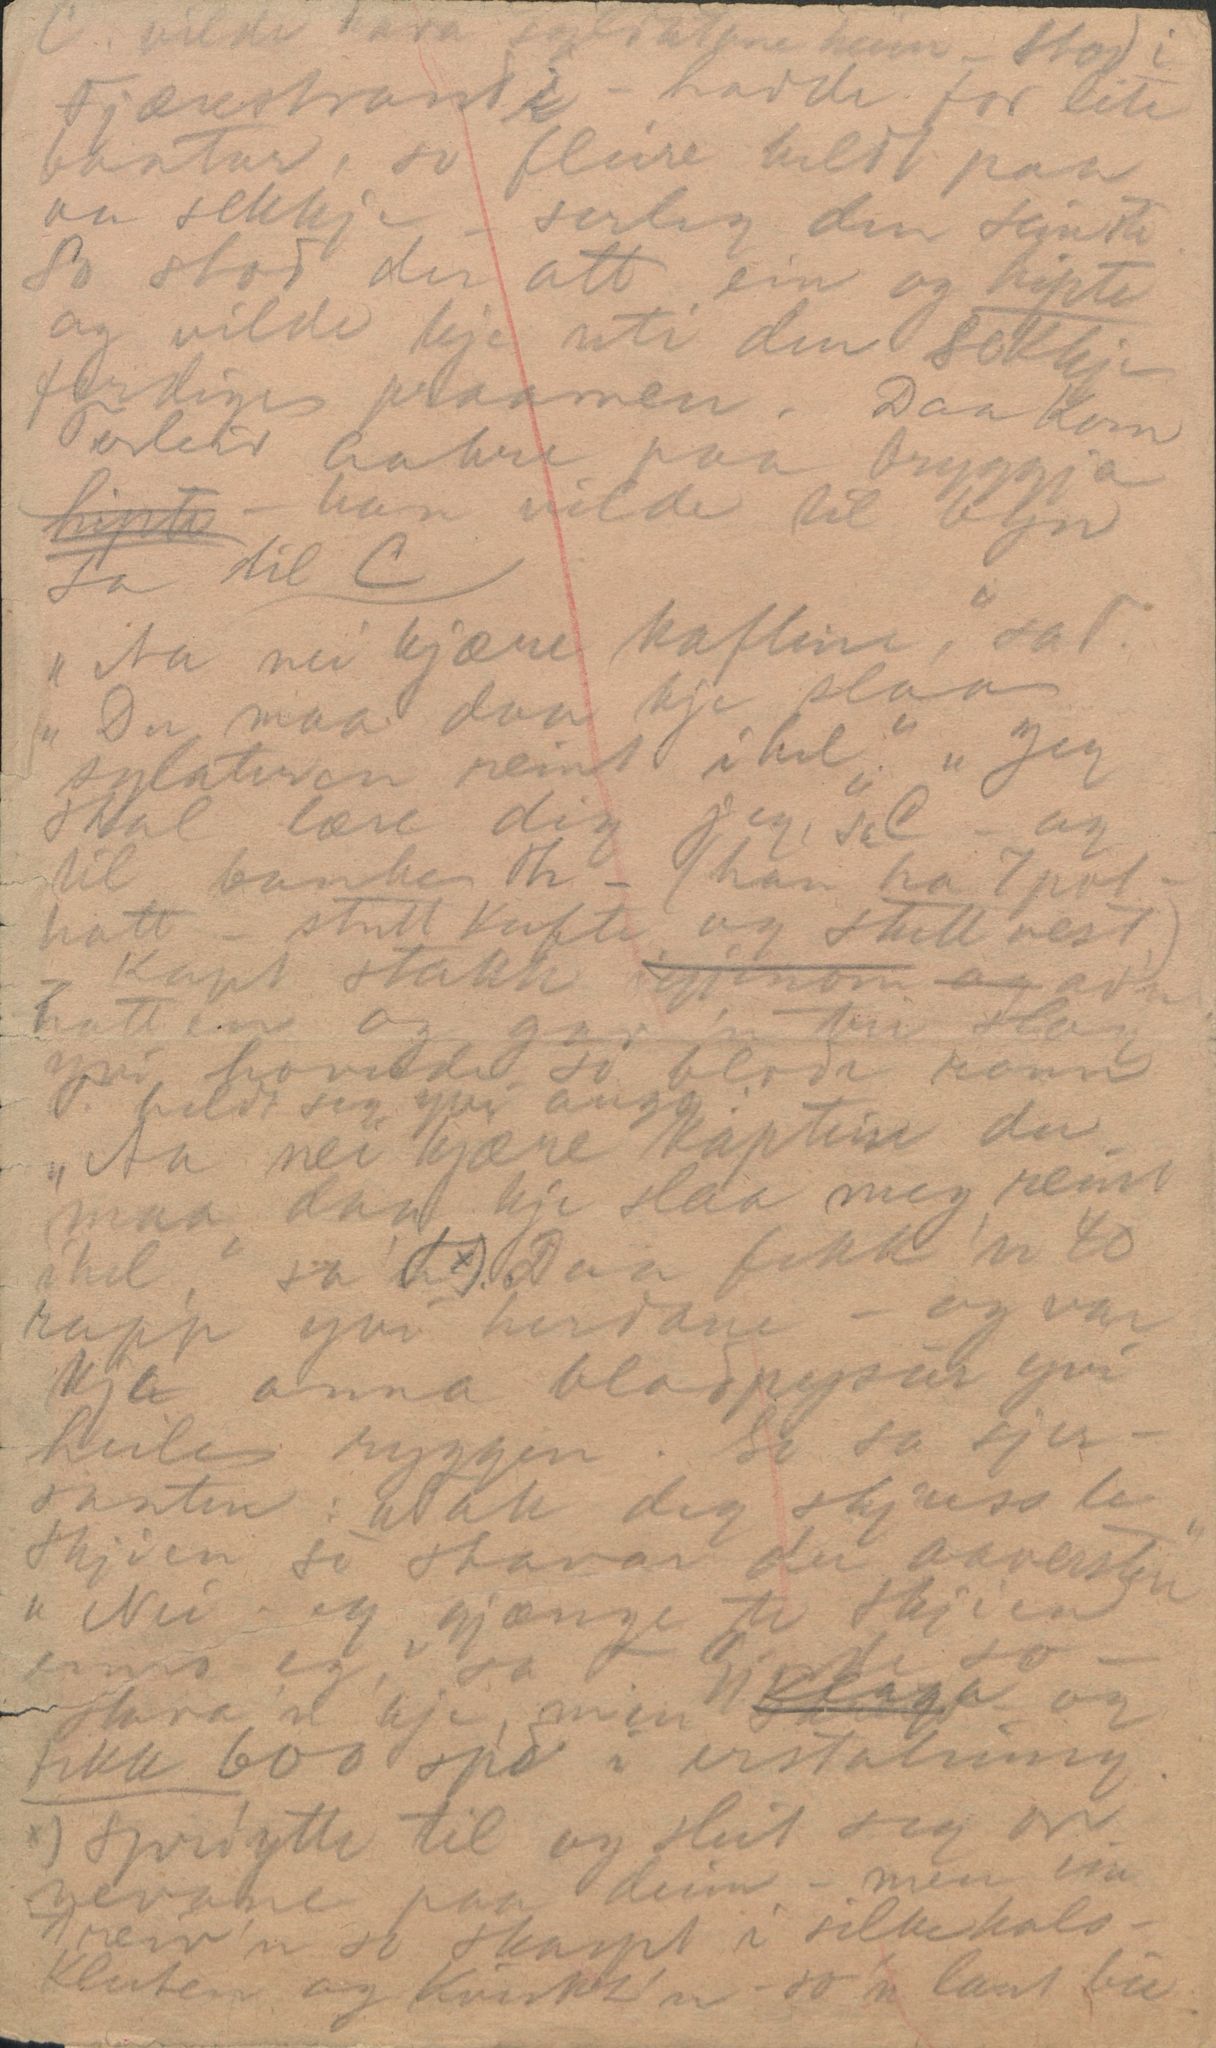 C. vilde hava syldatane heim - stod i
Fjærestrandi - hadde for lite
baatar, so fleire heldt paa
aa sekkje - serleg den seinste
So stod der att ein og hipte
og vilde kje uti den sekkje-
ferdige praamen. Daa kom
Torleiv Aakre paa bryggja
hipte - han vilde til byn
sa til C
"Aa nei kjære kafteine," sa T.
"Du maa daa kje slaa
syldaten reint ihel." "Jeg
skal lære dig jeg," sa C - og
til banke Th - (han ha 7 pot-
hatt - stutt kufte og stutt vest)
- Kapt stakk igjenom og av'n
hatten og gav'n tri slag
yvi hovude so blode rann
T. heldt seg yvi augo.
"Aa nei kjære kapteine du
maa daa kje slaa meg reint
ihel," sa'n x). Daa fekk'n 40
rapp yvi herdane - og var
kje anna blod yvi
heile ryggen. So sa sjer-
santen: "Tak deg skjuss te
Skjien so stavar du aaversten"
"Nei - eg gjænge te Skjien
eg," sa T. so -
stava'n kje, men klaga og
fekk 600 spd i erstatning.
x) Spridtte til og sleit seg or
nevane paa deim - men ein
treiv'n so skarpt i silkehals-
kluten og kvirkt'n - so'n laut bie.